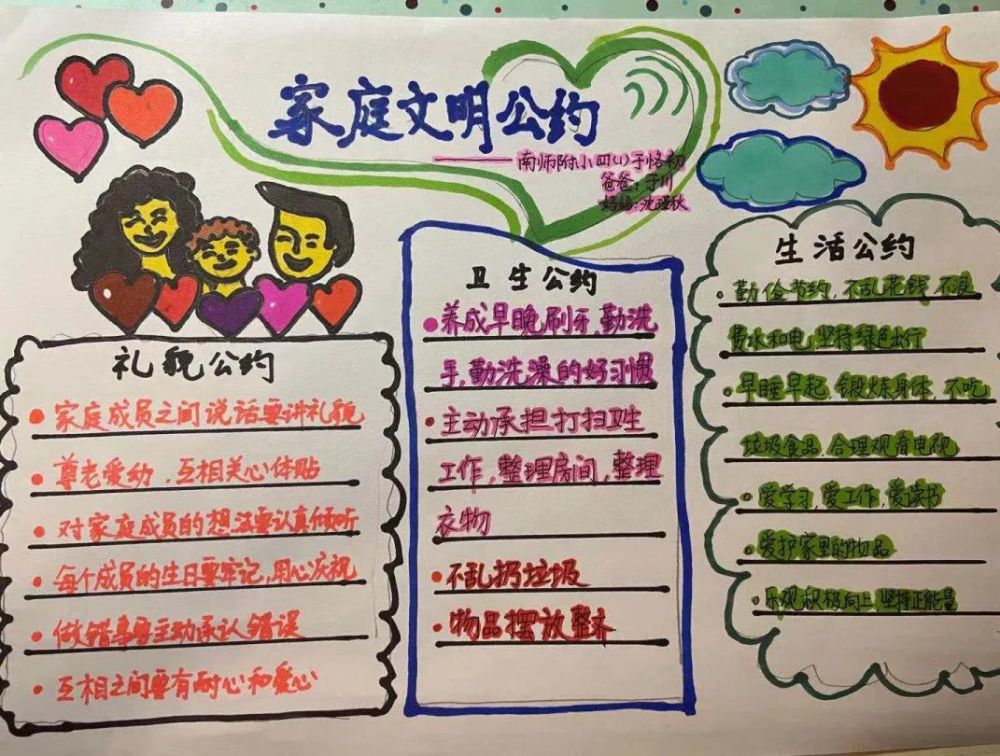 家庭文明公约
南师附小四(1)于恪初
爸爸:于川
妈妈:沈瑾秋
礼貌公约
• 家庭成员之间说话要讲礼貌
• 尊老爱幼,互相关心体贴
• 对家庭成员的想法要认真倾听
• 每个成员的生日要牢记,用心庆祝
• 做错事要主动承认错误
• 互相之间要有耐心和爱心
卫生公约
• 养成早晚刷牙,勤洗
手,勤洗澡的好习惯
• 主动承担打扫卫生
工作,整理房间,整理
衣物
• 不乱扔垃圾
• 物品摆放整齐
生活公约
• 勤俭节约,不乱花钱,不浪
费水和电,坚持绿色出行
• 早睡早起,锻炼身体,不吃
垃圾食品,合理观看电视
• 爱学习,爱工作,爱读书
• 爱护家里的物品
• 乐观积极向上,坚持正能量